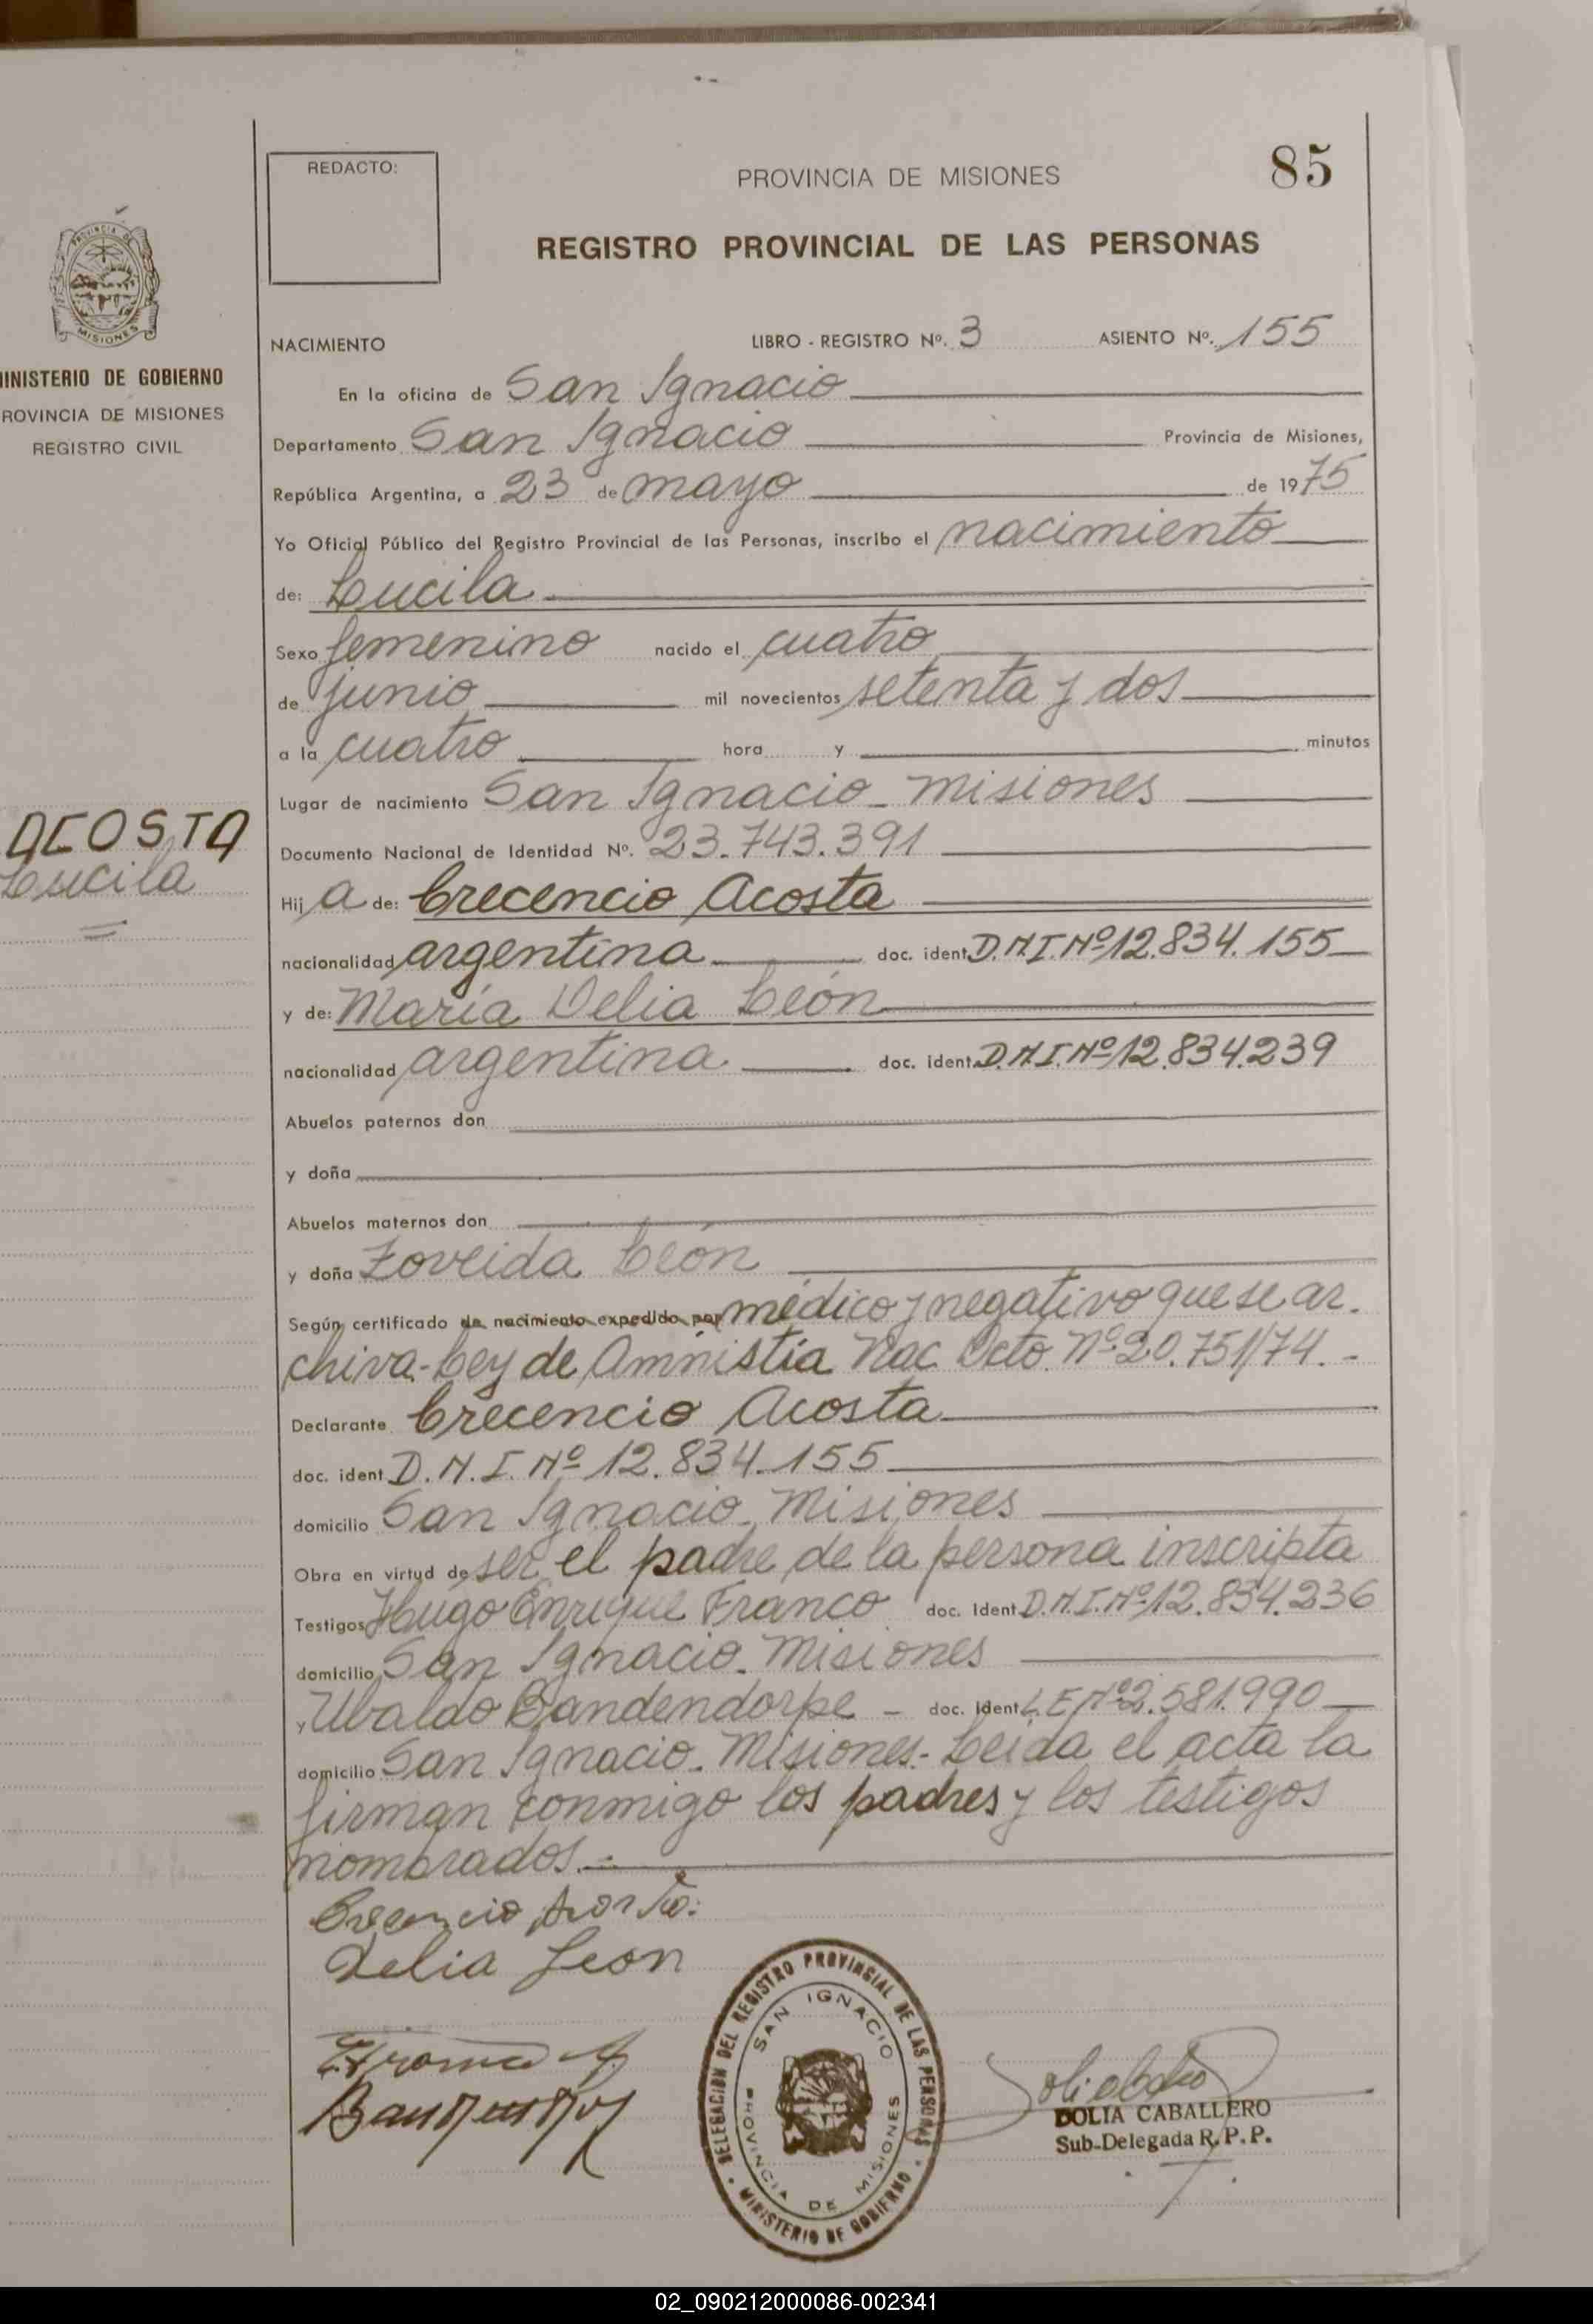 85
REDACTO:
PROVINCIA DE MISIONES
REGISTRO PROVINCIAL DE LAS PERSONAS
PROVINCIA DE
MISIONES
MINISTERIO DE GOBIERNO
PROVINCIA DE MISIONES
REGISTRO CIVIL
NACIMIENTO LIBRO - REGISTRO Nº. 3 ASIENTO Nº. 155
En la oficina de San Ignacio
Departamento San Ignacio Provincia de Misiones,
República Argentina, a 23 de mayo de 1975
Yo Oficial Público del Registro Provincial de las Personas, inscribo el nacimiento
de: Lucila
Sexo femenino nacido el cuatro
de junio mil novecientos setenta y dos
a la cuatro hora y minutos
Lugar de nacimiento San Ignacio - Misiones
ACOSTA
Lucila
Documento Nacional de Identidad Nº. 23.743.391
Hij a de: Crecencio Acosta
nacionalidad argentina doc. ident. D.N.I. Nº 12.834.155
y de: María Delia León
nacionalidad argentina doc. ident. D.N.I. Nº 12.834.239
Abuelos paternos don
y doña
Abuelos maternos don
y doña Zoveida León
Según certificado de nacimiento expedido por médico y negativo que se ar.
chiva.- Ley de Amnistía Nac. Dcto. Nº 20.751/74.-
Declarante Crecencio Acosta
doc. ident D.N.I. Nº 12.834.155
domicilio San Ignacio - Misiones
Obra en virtud de ser el padre de la persona inscripta
Testigos Hugo Enrique Franco doc. Ident D.N.I. Nº 12.834.236
domicilio San Ignacio - Misiones
y Ubaldo Bandendorpe - doc. Ident L.E. Nº 2.581.990
domicilio San Ignacio - Misiones.- Leida el acta la
firman conmigo los padres y los testigos
nombrados.-
Crecencio Acosta
Delia Leon
DELEGACION DEL REGISTRO PROVINCIAL DE LAS PERSONAS
SAN IGNACIO
PROVINCIA DE MISIONES
MINISTERIO DE GOBIERNO
DOLIA CABALLERO
Sub-Delegada R.P.P.
02_090212000086-002341